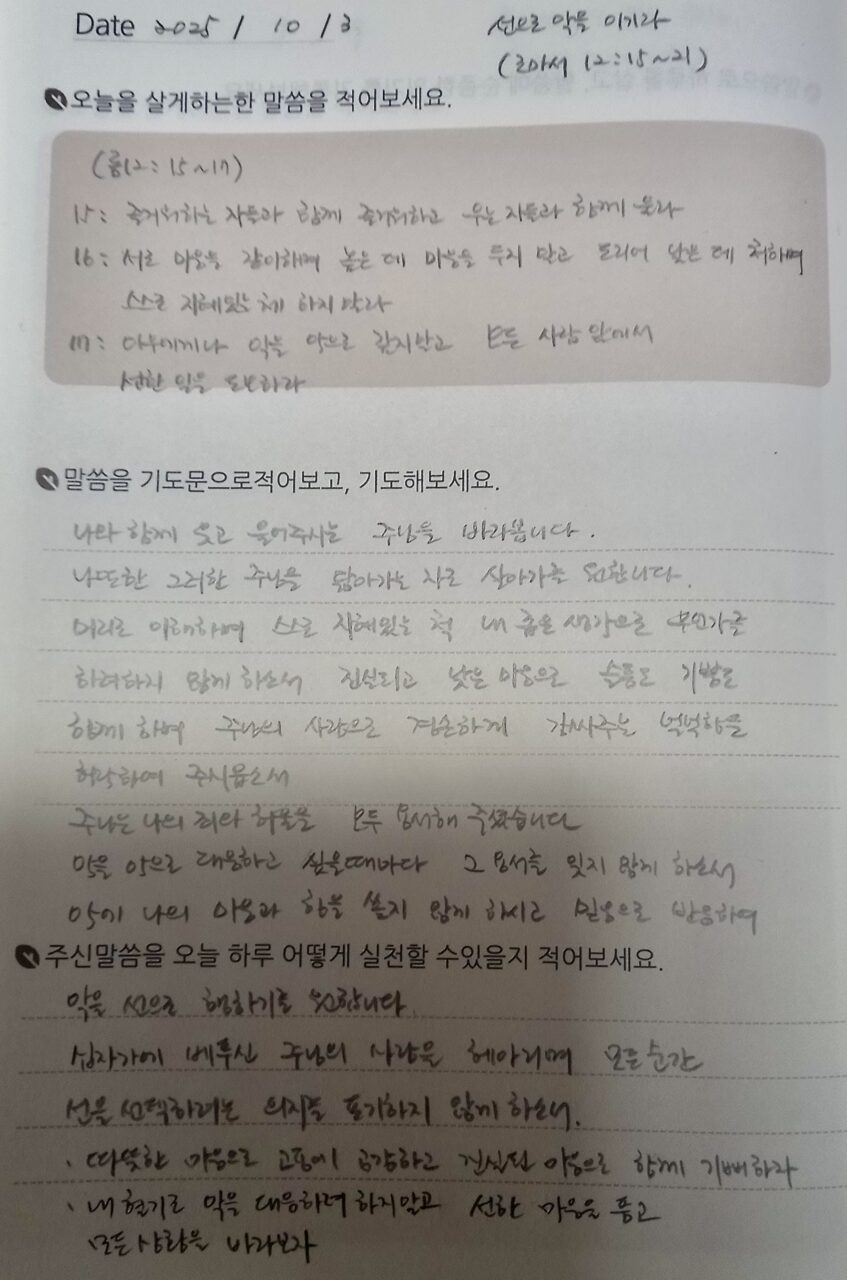 Date 2025 / 10 / 3
선으로 악을 이기라
(로마서 12:15~21)
오늘을 살게하는한 말씀을 적어보세요.
(롬12:15~17)
15: 즐거워하는 자들과 함께 즐거워하고 우는 자들과 함께 울라
16: 서로 마음을 같이하며 높은 데 마음을 두지 말고 도리어 낮은 데 처하며
스스로 지혜있는 체 하지 말라
17: 아무에게나 악을 악으로 갚지말고 모든 사람 앞에서
선한 일을 도모하라
말씀을 기도문으로적어보고, 기도해보세요.
나와 함께 웃고 울어주시는 주님을 바라봅니다.
나또한 그러한 주님을 닮아가는 자로 살아가길 원합니다.
머리로 이해하며 스스로 지혜있는 척 내 좁은 생각으로 무언가를
하려하지 않게 하소서 진실되고 낮은 마음으로 슬픔도 기쁨도
함께 하며 주님의 사랑으로 겸손하게 감싸주는 넉넉함을
허락하여 주시옵소서
주님은 나의 죄와 허물을 모두 용서해 주셨습니다
악을 악으로 대응하고 싶을때마다 그 용서를 잊지 않게 하소서
악에 나의 마음과 힘을 쏟지 않게 하시고 믿음으로 반응하며
주신말씀을 오늘 하루 어떻게 실천할 수있을지 적어보세요.
악을 선으로 행하기를 원합니다.
십자가에 베푸신 주님의 사랑을 헤아리며 모든순간
선을 선택하려는 의지를 포기하지 않게 하소서.
· 따뜻한 마음으로 고통에 공감하고 진실된 마음으로 함께 기뻐하라
· 내 혈기로 악을 대응하려 하지말고 선한 마음을 품고
모든 상황을 바라보자